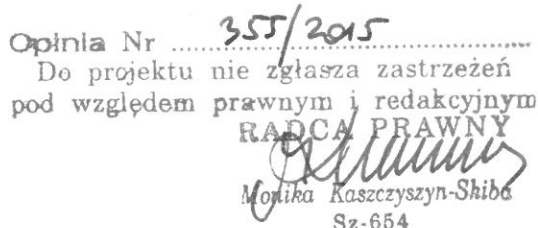 Opinia Nr ...355/2015...
Do projektu nie zgłasza zastrzeżeń
pod względem prawnym i redakcyjnym
RADCA PRAWNY
Monika Kaszczyszyn-Skiba
Sz-654